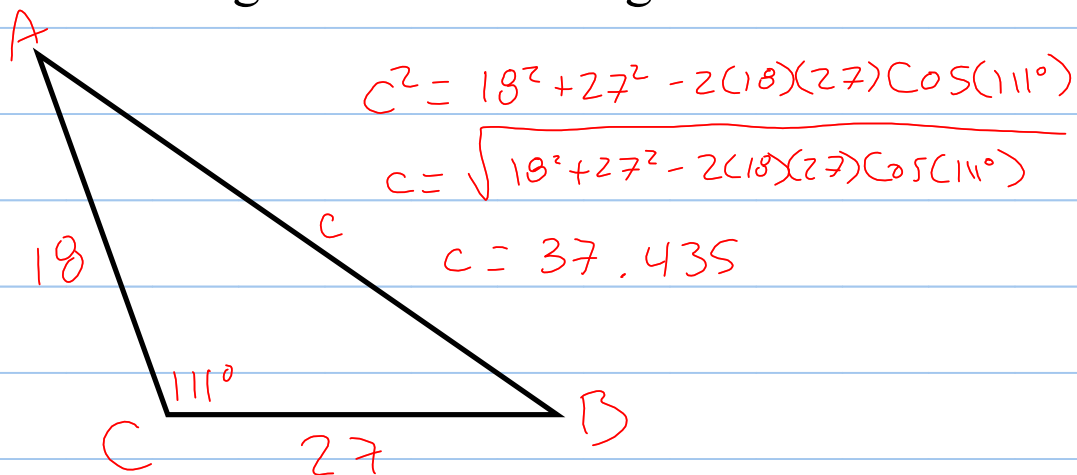 A
c² = 18² + 27² - 2(18)(27) Cos(111°)
c = √18² + 27² - 2(18)(27) Cos(111°)
c
18
c = 37.435
111°
C
27
B